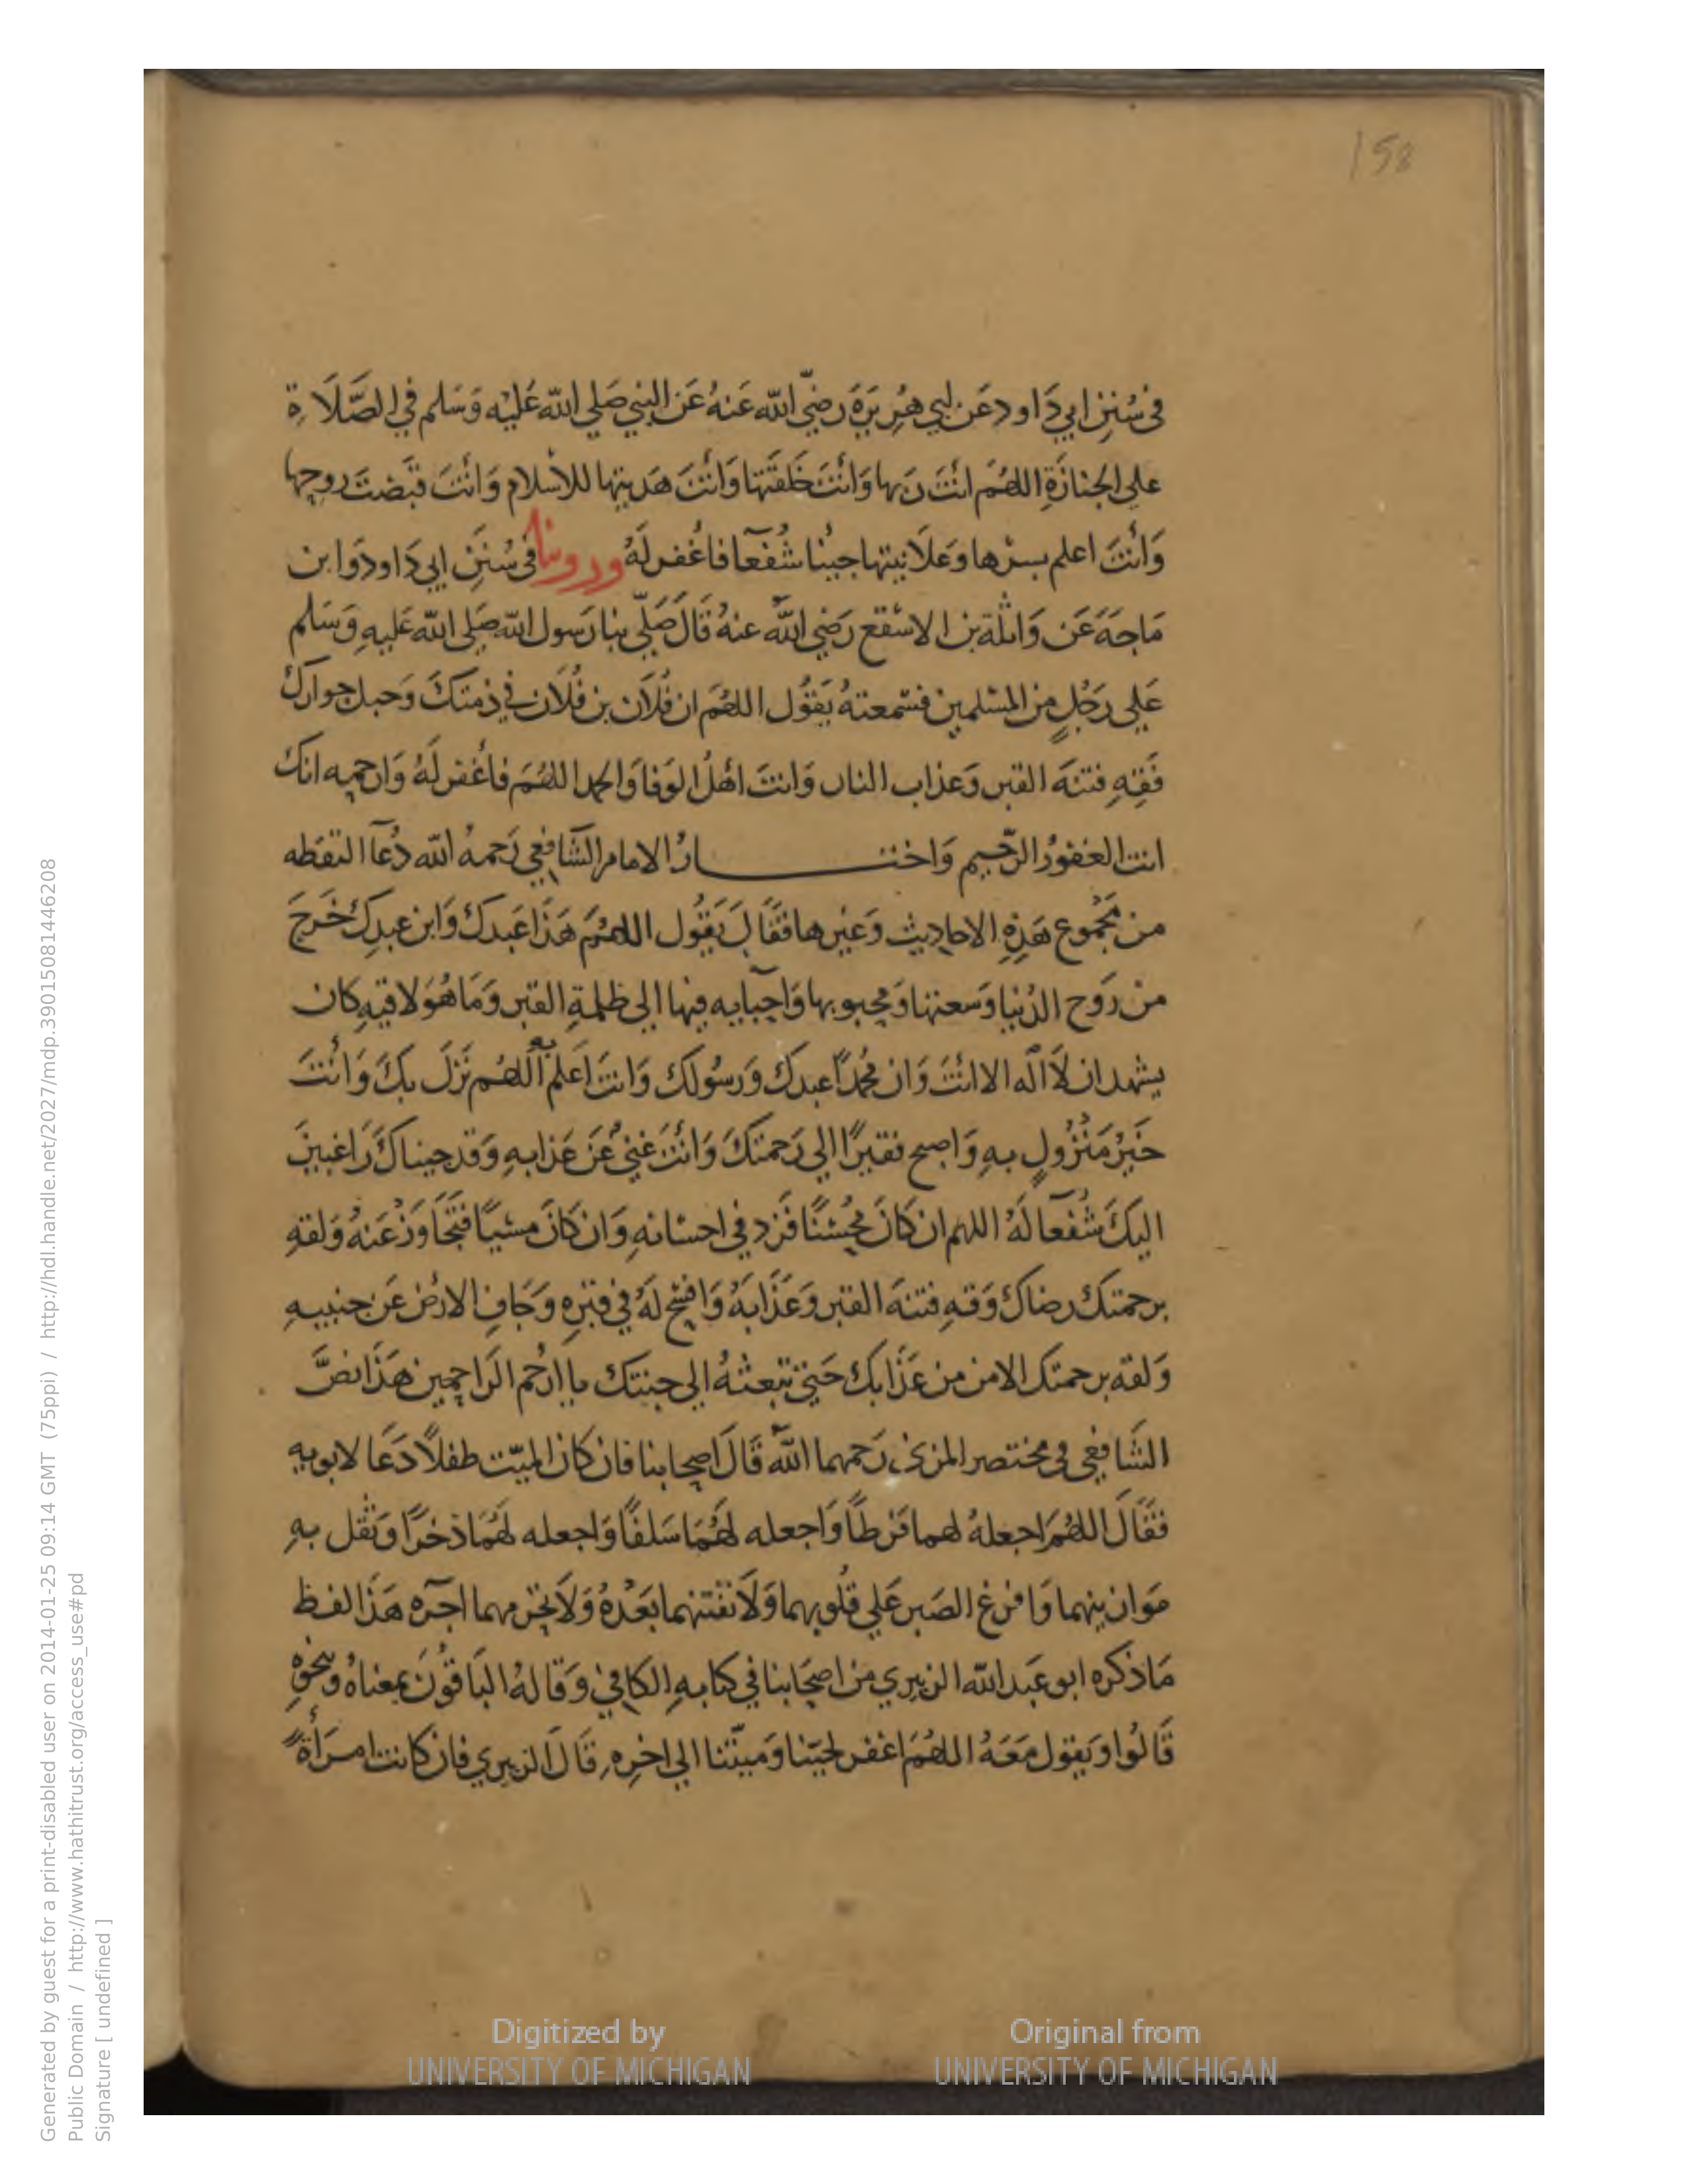 158
في سُنَنِ ابي دَاود عَن ابي هُرِيَرَةَ رضيّ اللّه عَنهُ عَن النبي صَلي اللّه عَليْه وَسَلم في الصَّلَاةِ
علي الجنازَةِ اللهُمَ انتَ رَبها وَأنتَ خَلقتَها وَانتَ هَديتها للاسْلام وَانْتَ قبَضتَ روحها
وَأنتَ اعلم بسرّها وَعلَانيتها جيْنا شُفعآ فاغْفر لَهُ وروينا في سُنَنِ ابي دَاود وَابن
مَاجَهَ عَن وَاثلَة بن الاسْقع رَضيِ اللّه عنهُ قَالَ صَلّي بنا رَسول اللّه صَلي اللّه عَليهِ وَسَلم
عَلي رَجُلٍ من المسْلمين فسَمعتهُ يَقوُل اللهُمَ ان فُلَان بن فُلَان في ذمتكَ وَحبل جوارك
فَقِهِ فتنهَ القبر وَعذاب النار وَانتَ اهْلُ الوَفا وَالحمد اللهُمَ فاغْفر لَهُ وَارحمِه انك
انت الغفورُ الرّحيم وَاختـــارُ الامام الشَافعي رَحمهُ اللّه دُعَآ التقطه
من مَجْموع هَذِهِ الاحاديث وَغيْرها فقَالَ يَقوُل اللهمُمَ هَذَا عَبدكَ وَابن عبدكَ خَرجَ
من رَوح الدُنيا وَسعتها وَمحبوبها وَاحبآيه فيها الي ظلمةِ القبر وَمَا هُوَ لاقيهِ كان
يشهد ان لَا الَه الا انتَ وَان مُحمداً عبدكَ وَرسُولك وَانتَ اَعلمُ به اللهُم نَزلَ بكَ وَأنتَ
خَيْرُ مَنْزُولٍ بهِ وَاصبح فقيرًا الي رَحمتكَ وَأنتَ غنيُ عَن عَذابهِ وَقد جيناكَ رَاغبينَ
اليكَ شُفعآ لَهُ اللهم ان كَانَ مُحْسْنًا فَزد في احسانهِ وَان كَانَ مسْيًا فتَجَاوَزْ عَنهُ وَلقهِ
برحمتكَ رضاكَ وَقهِ فتنهَ القبر وَعَذَابَهُ وَافسْح لَهُ في قبْرهِ وَجَافِ الارْض عَن جنبيهِ
وَلقه برحمتك الامن من عَذَابكَ حَتي تبْعثهُ الي جنتك يا ارْحَم الرَاحمين هَذَا نصَّ
الشَافعي في مختصر المزني رَحمهما اللّه قَالَ اصحابنا فان كان الميّت طفلاً دَعَا لابويهِ
فقَالَ اللهُمَ اجعلهُ لهما فَرَطاً وَاجعله لهُمَا سَلفًا وَاجعله لهُمَا ذخرًا وَثقل بهِ
مَوازينهما وَافرغ الصَبر عَلي قلُوبهما وَلَا تفتنهما بَعْدهُ وَلَا تحْرمهما اجره هَذَا لفظ
مَا ذكره ابو عَبد اللّه الزبيري من اصحَابنا في كتابهِ الكَافي وَقَالهُ البَاقوُنَ بمعناهُ وَبنحوهِ
قَالُوا وَيقول مَعَهُ اللهُمَ اغفر لحيّنا وَميتّنا الي اخرِهِ قَالَ الزبيري فان كانت امرَأةً
Generated by guest for a print-disabled user on 2014-01-25 09:14 GMT (75ppi) / http://hdl.handle.net/2027/mdp.39015081446208
Public Domain / http://www.hathitrust.org/access_use#pd
Signature [ undefined ]
Digitized by
UNIVERSITY OF MICHIGAN
Original from
UNIVERSITY OF MICHIGAN